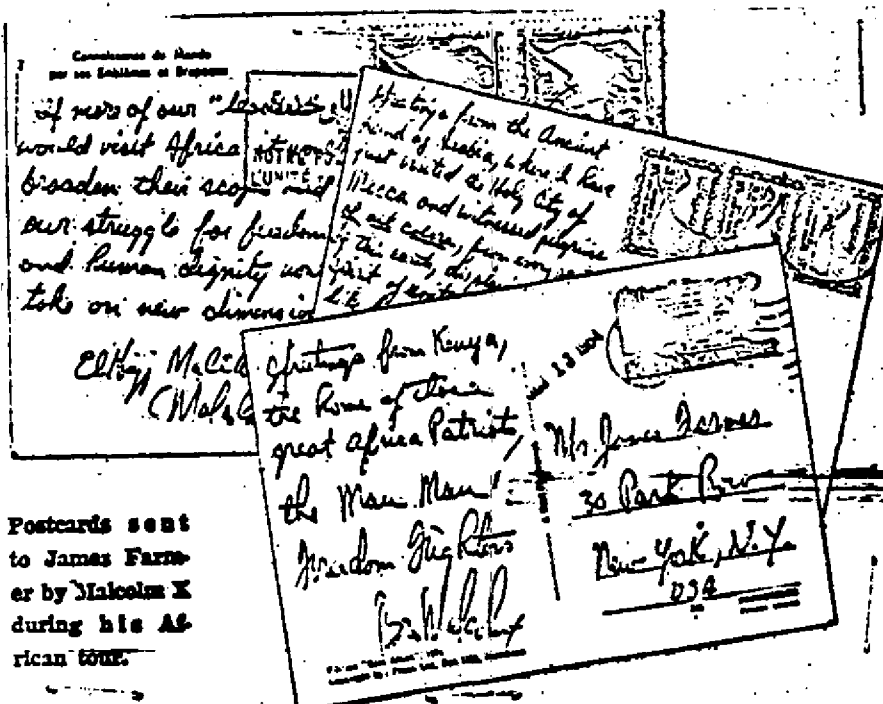 Connaissance du Monde
par ses Emblèmes et Drapeaux
if more of our "leaders"
would visit Africa it
broaden their scope and
our struggle for freedom
and human dignity wo
take on new dimensio
El Hajj Malik
(Malc
NOTRE
L'UNITÉ
Greetings from the Ancient
land of Arabia, where I have
just visited the Holy City of
Mecca and witnessed pilgrims
of all colors, from every
this earth, displ
spirit of
like
Greetings from Kenya,
the home of those
great Africa Patriots,
the "Mau Mau"
Freedom Fighters
Bro. Malcolm X
Mr James Farmer
38 Park Row
New York, N.Y.
USA
Postcards sent
to James Farm-
er by Malcolm X
during his Af-
rican tour.